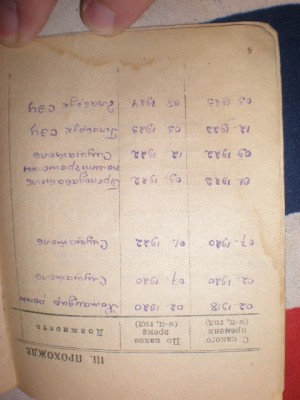 III. ПРОХОЖДЕ
С какого времени (м-ц, год) По какое время (м-ц, год) Должность
02.1918 02.1920 Командир роты
02.1920 07.1920 Слушатель
07.1920 01.1922 Слушатель
01.1922 09.1922 Преподаватель
политграмоты
09.1922 12.1922 Слушатель
12.1922 03 1925
03 1925 08 1927
4